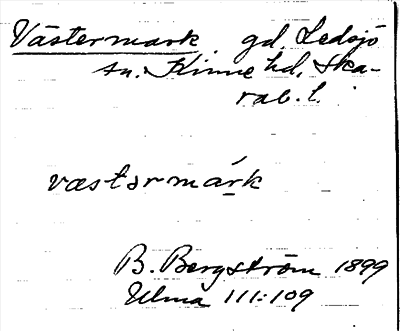 Västermark gd, Ledsjö
sn. Kinne hd, Ska-
rab. l.
væstərmárk
B. Bergström 1899
Ulma 111:109